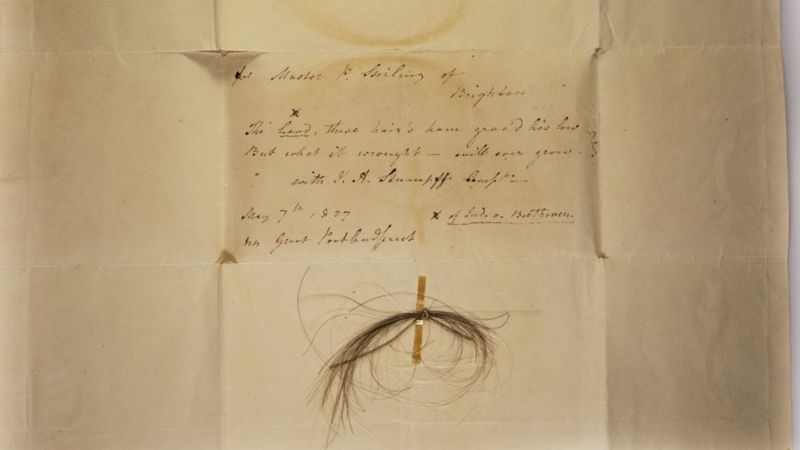 for Master P. Stirling of
Brighton
The head, these hair's have grac'd lies low
But what it wrought – will ever grow.
with J. A. Stumpff's Compts.
May 7th 1827
× of Lud. v. Beethoven.
Great Portland Street